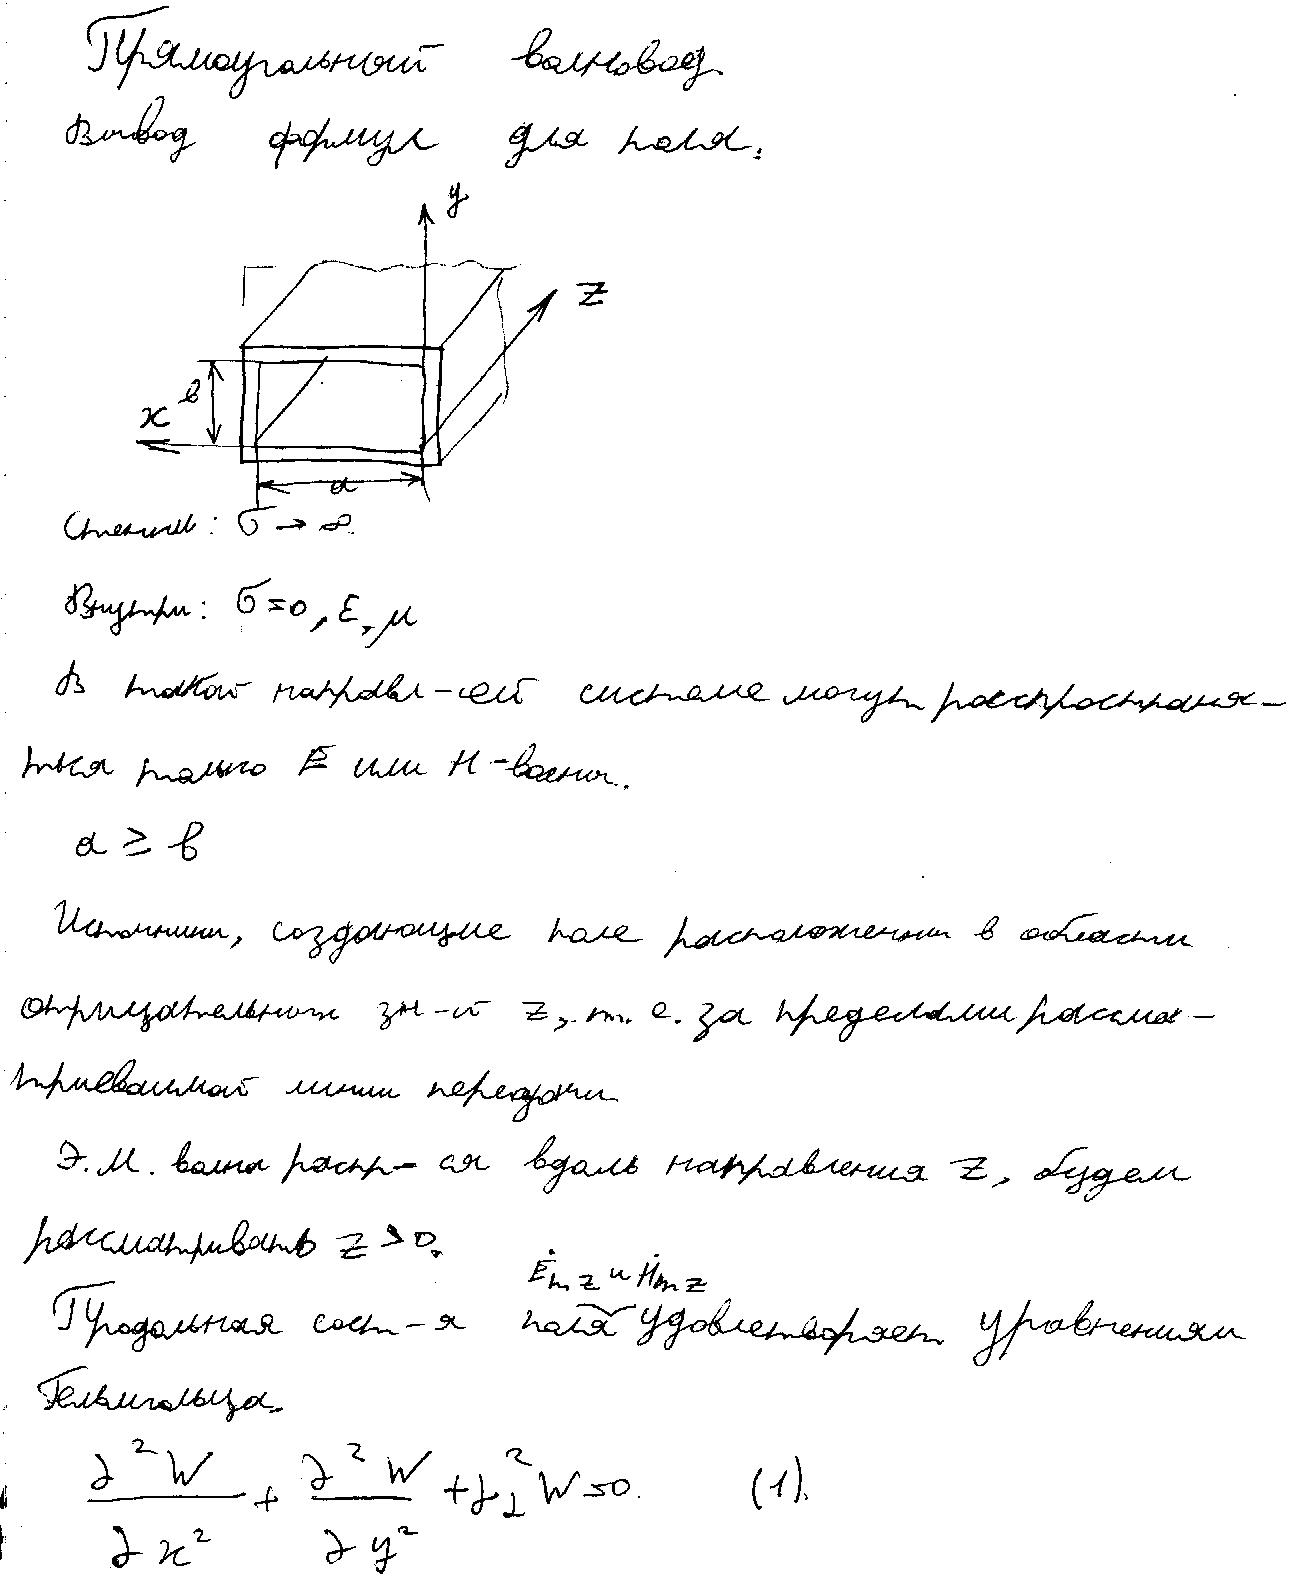 Прямоугольный волновод.
Вывод формул для поля.
y
z
в
x
a
Стенки: σ → ∞.
Внутри: σ=0, ε, μ
В такой направл-ей системе могут распространя-
ться только E или H-волны.
a ≥ в
Источники, создающие поле расположенны в области
отрицательных зн-й z, т. е. за пределами рассма-
триваемой линии передачи
Э.М. волна распр-ся вдоль направления z, будем
рассматривать z > 0.
Ėmz и Ḣmz
Продольная сост-я поля удовлетворяет уравнениям
Гельмгольца.
∂²W/∂x² + ∂²W/∂y² + γ⊥² W = 0. (1).